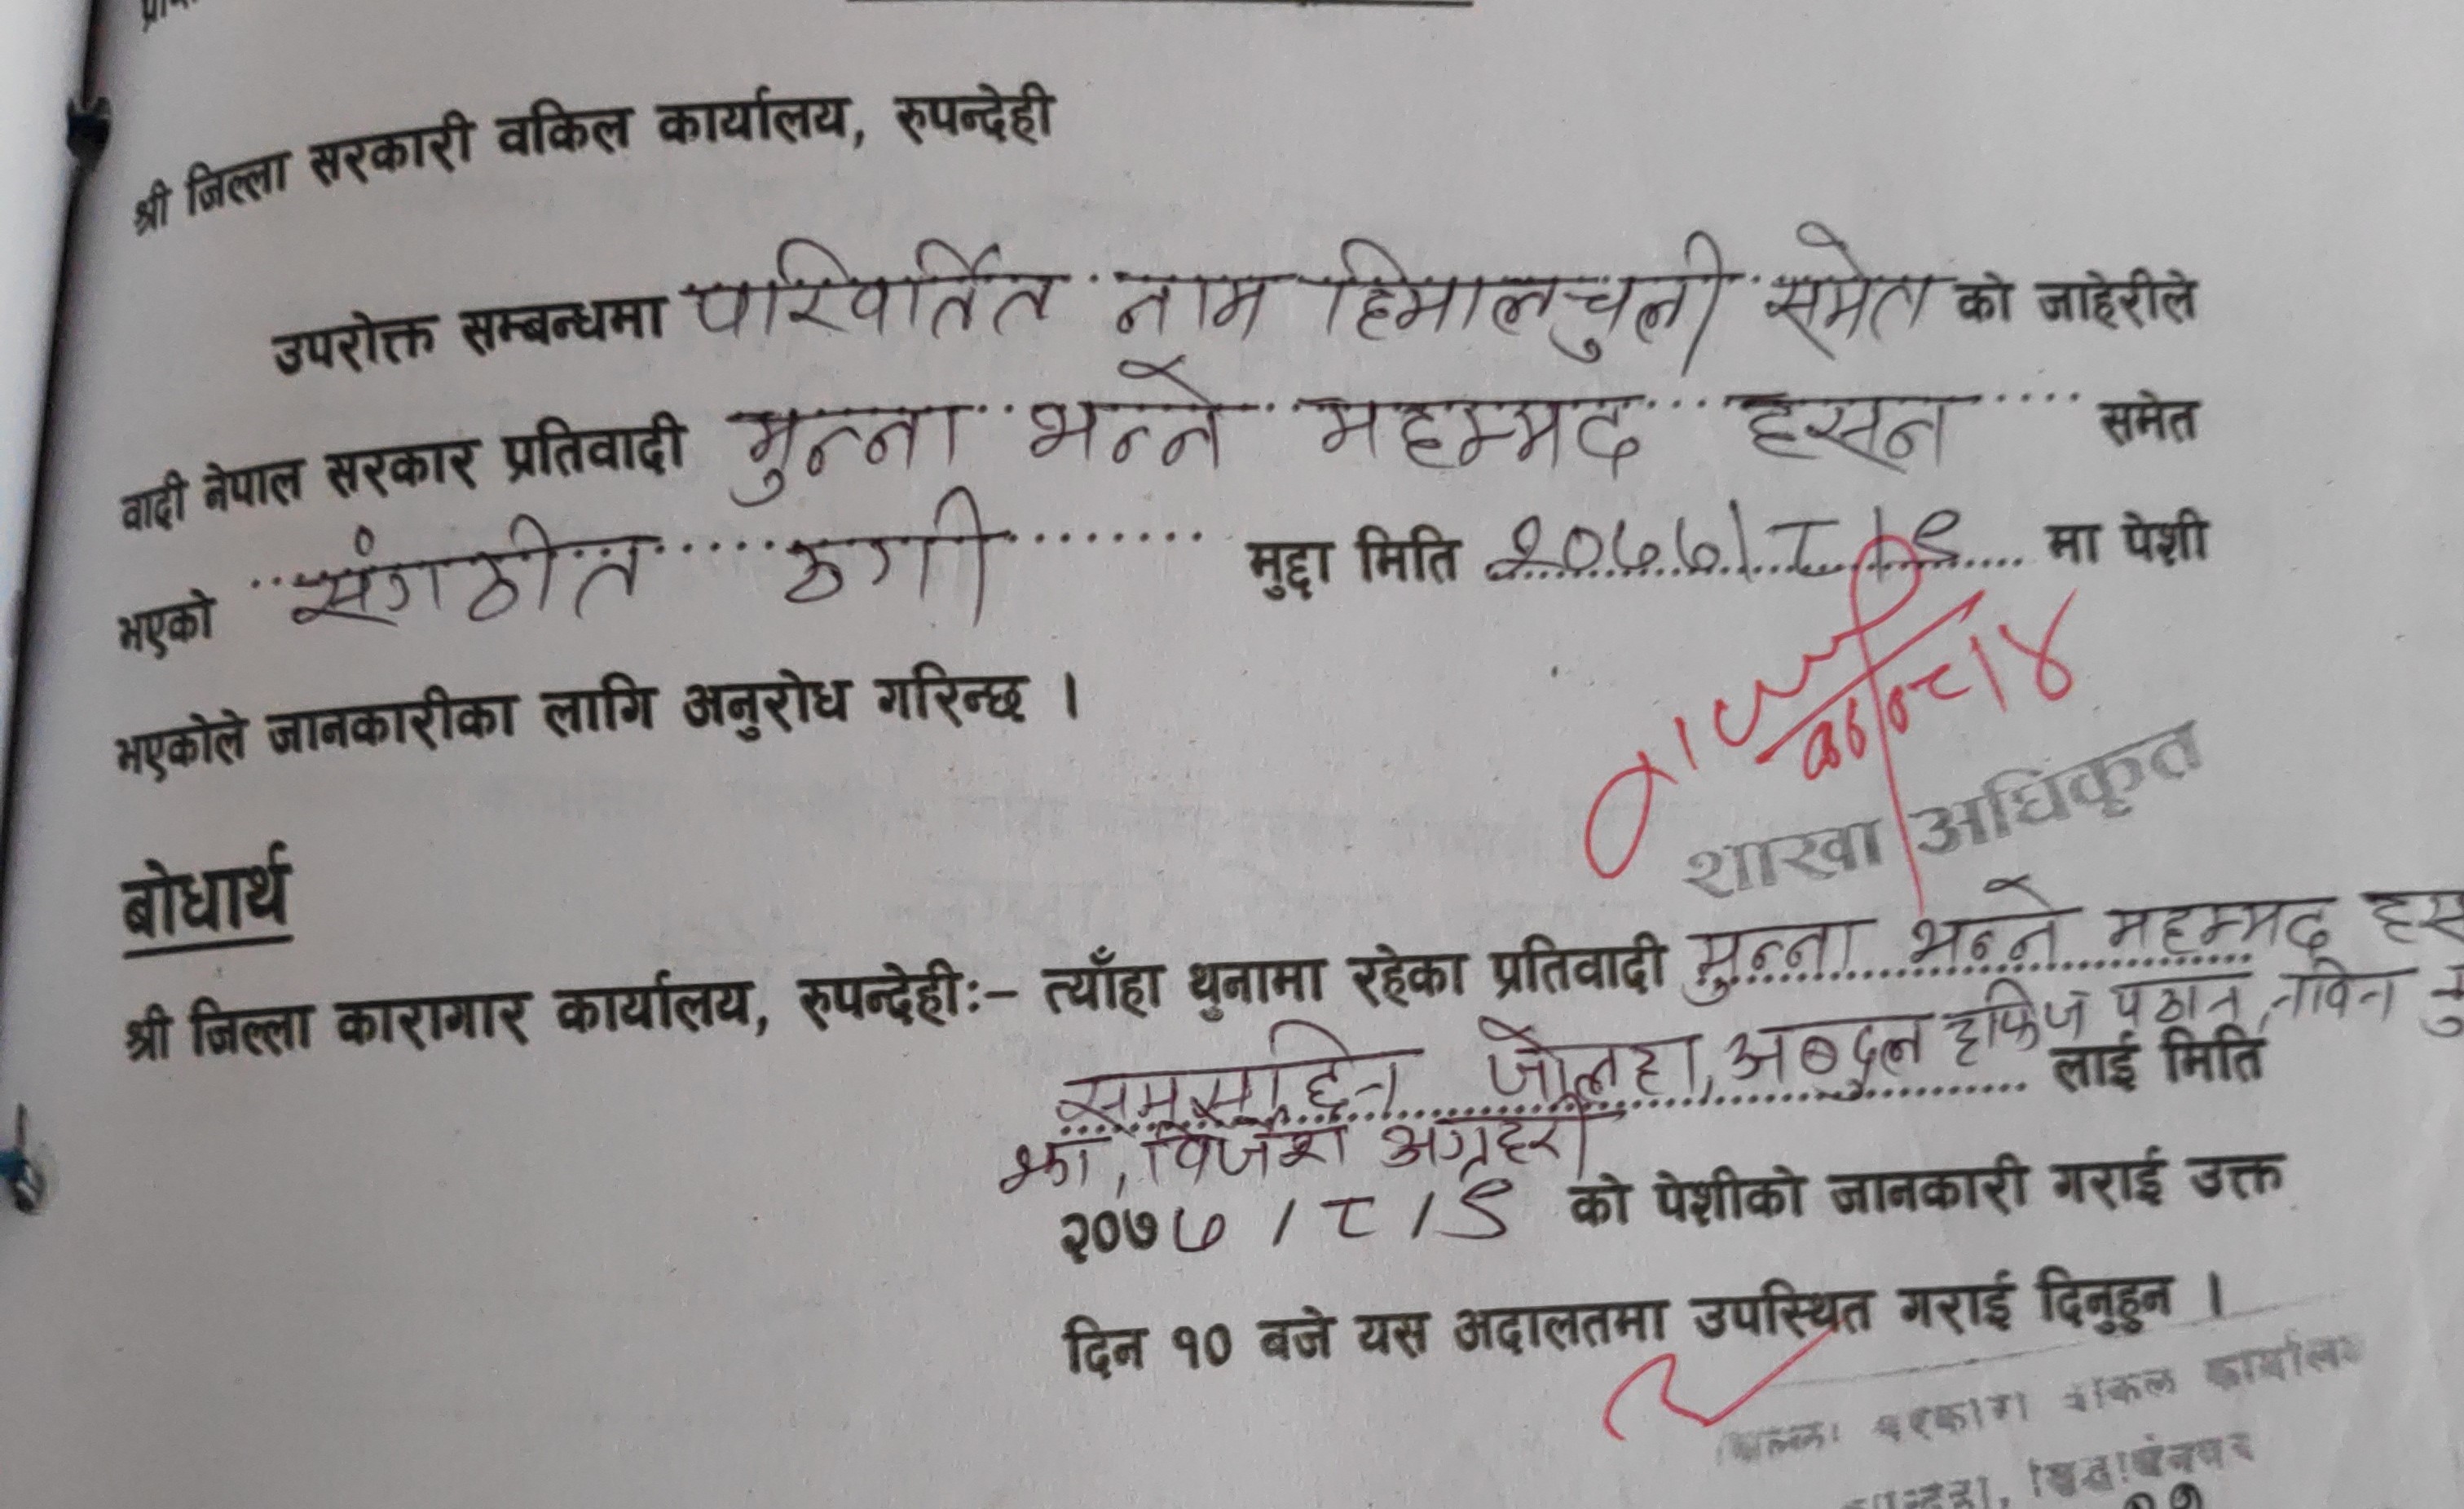 श्री जिल्ला सरकारी वकिल कार्यालय, रुपन्देही
उपरोक्त सम्बन्धमा परिवर्तित नाम हिमालचुली समेत को जाहेरीले
वादी नेपाल सरकार प्रतिवादी मुन्ना भन्ने महम्मद हसन समेत
भएको संगठीत ठगी मुद्दा मिति २०७७/८/९ मा पेशी
भएकोले जानकारीका लागि अनुरोध गरिन्छ ।
शाखा अधिकृत
बोधार्थ
श्री जिल्ला कारागार कार्यालय, रुपन्देही:- त्याँहा थुनामा रहेका प्रतिवादी मुन्ना भन्ने महम्मद
समसुद्दिन जोलहा, अब्दुल हफिज पठान, नविन
लाई मिति
झा, विजश अग्रहरी
२०७७/८/९ को पेशीको जानकारी गराई उक्त
दिन १० बजे यस अदालतमा उपस्थित गराई दिनुहुन ।
जिल्ला सरकारी वकिल कार्यालय